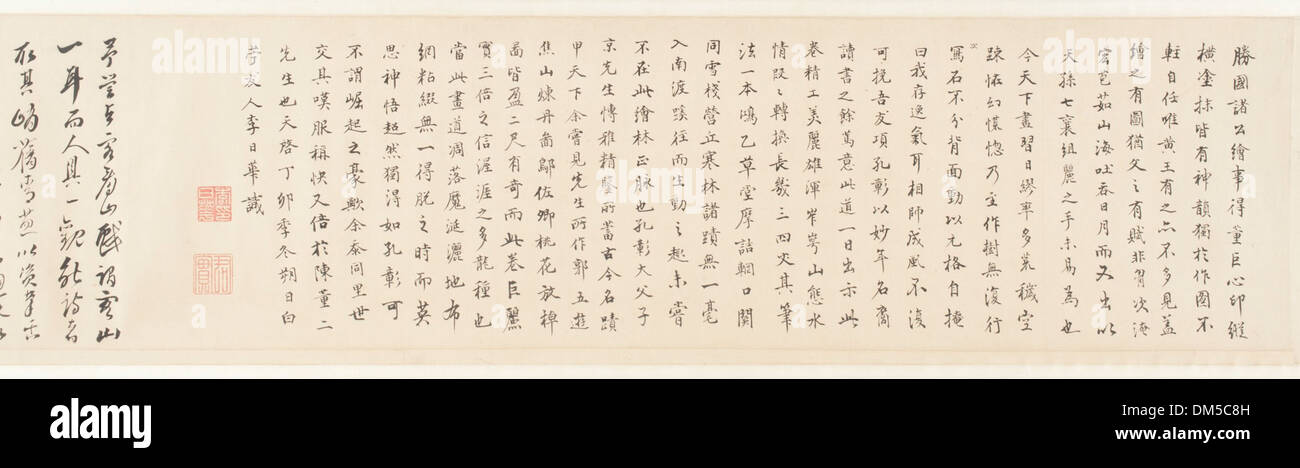 勝國諸公繪事得董巨心印縱
橫塗抹皆有神韻獨於作圖不
輕自任唯黃王有之亦不多見蓋
繪之有圖猶文之有賦非胷次淹
宏苞茹山海吐吞日月而又出以
天孫七襄組麗之手未易為也
今天下畫習日繆率多荒穢空
踈怪幻慌惚乃主作樹無復行
寫石不分背面動以元格自掩
曰我存逸氣耳相師成風不復
可挽吾友項孔彰以妙年名裔
讀書之餘篤意此道一日出示此
卷精工美麗雄渾峍崿山態水
情段〻轉換長幾三四丈其筆
法一本鴻乙草堂摩詰輞口關
同雪棧營丘寒林諸蹟無一毫
入南渡蹊徑而生動之趣未嘗
不在此繪林正脉也孔彰大父子
京先生博雅精鑒所蓄古今名蹟
甲天下余嘗見先生所作郭五遊
焦山煉丹圖鄔佐卿桃花放棹
圖皆盈二尺有奇而此卷巨麗
實三倍之信渥涯之多龍種也
當此畫道凋落魔涎灑地布
網粘綴無一得脫之時而英
思神悟超然獨得如孔彰可
不謂崛起之豪歟余泰同里世
交具嘆服稱快又倍於陳董二
先生也天啓丁卯季冬朔日白
苧友人李日華識
一耳而人具一觀能詩者
alamy
a
DM5C8H
www.alamy.com